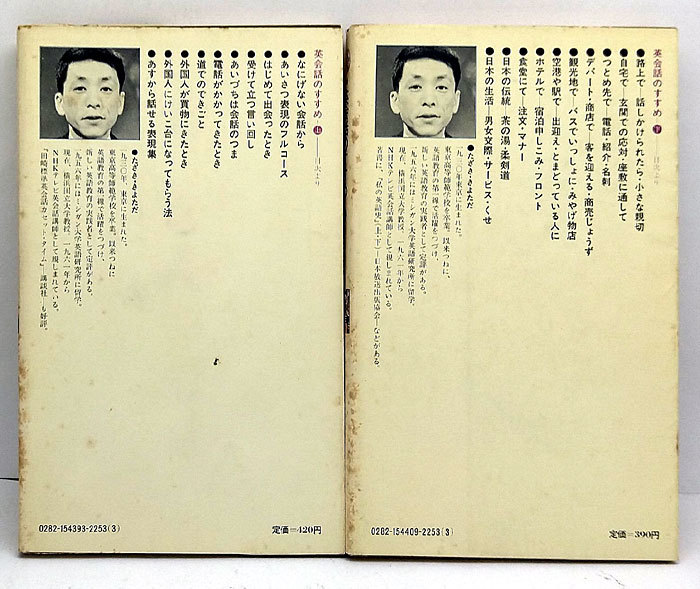 英会話のすすめ 上―目次より
●なにげない会話から
●あいさつ表現のフルコース
●はじめて出会ったとき
●受けて立つ言い回し
●あいづちは会話のつま
●電話がかかってきたとき
●道でのできごと
●外国人が買物にきたとき
●外国人にけいこ台になってもらう法
●あすから話せる表現集
●たざき・きよただ
一九三〇年東京に生まれた。
東京高等師範学校を卒業。以来つねに、
英語教育の第一線で活躍をつづけ、
新しい英語教育の実践者として定評がある。
一九五六年にはミシガン大学英語研究所に留学。
現在、横浜国立大学教授。一九六一年から
NHKテレビ英会話講師として親しまれている。
「田崎標準英会話カセット・タイム」―講談社―も好評。
0282-154393-2253(3)
定価=420円
英会話のすすめ 下―目次より
●路上で―話しかけられたら・小さな親切
●自宅で―玄関での応対・座敷に通して
●つとめ先で―電話・紹介・名刺
●デパート・商店で―客を迎える・商売じょうず
●観光地で―バスでいっしょに・みやげ物店
●空港や駅で―出迎え・とまどっている人に
●ホテルで―宿泊申しこみ・フロント
●食堂にて―注文・マナー
●日本の伝統―茶の湯・柔剣道
●日本の生活―男女交際・サービス・くせ
●たざき・きよただ
一九三〇年東京に生まれた。
東京高等師範学校を卒業。以来つねに、
英語教育の第一線で活躍をつづけ、
新しい英語教育の実践者として定評がある。
一九五六年にはミシガン大学英語研究所に留学。
現在、横浜国立大学教授。一九六一年から
NHKテレビ英会話講師として親しまれている。
著書に「私の英語史」(上・下)―日本放送出版協会―などがある。
0282-154409-2253(3)
定価=390円